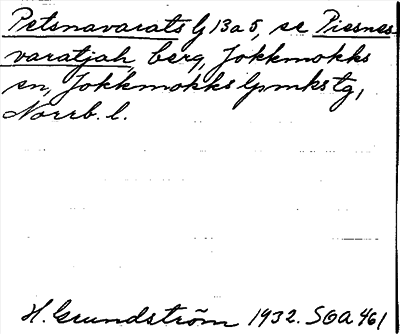 Petsnavarats G 13 a 5, se Piesnes
varatjah, berg, Jokkmokks
sn, Jokkmokks lpmkstg,
Norrb. l.
H. Grundström 1932. SOA 461